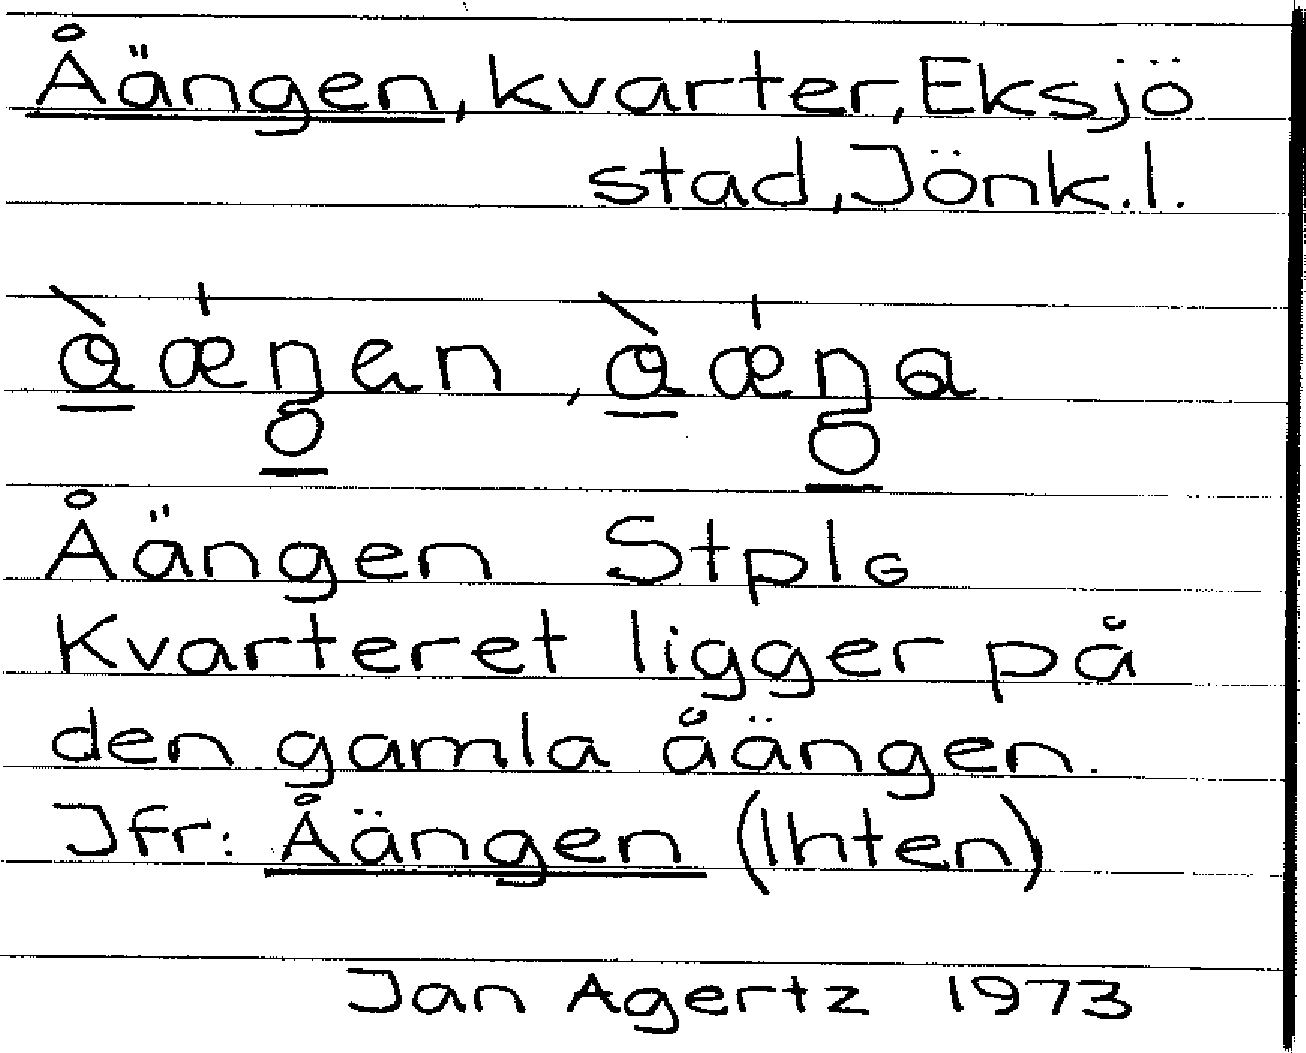 Åängen, kvarter, Eksjö
stad, Jönk.l.
Åängen Stplo
Kvarteret ligger på
den gamla åängen.
Jfr: Åängen (Ihten)
Jan Agertz 1973